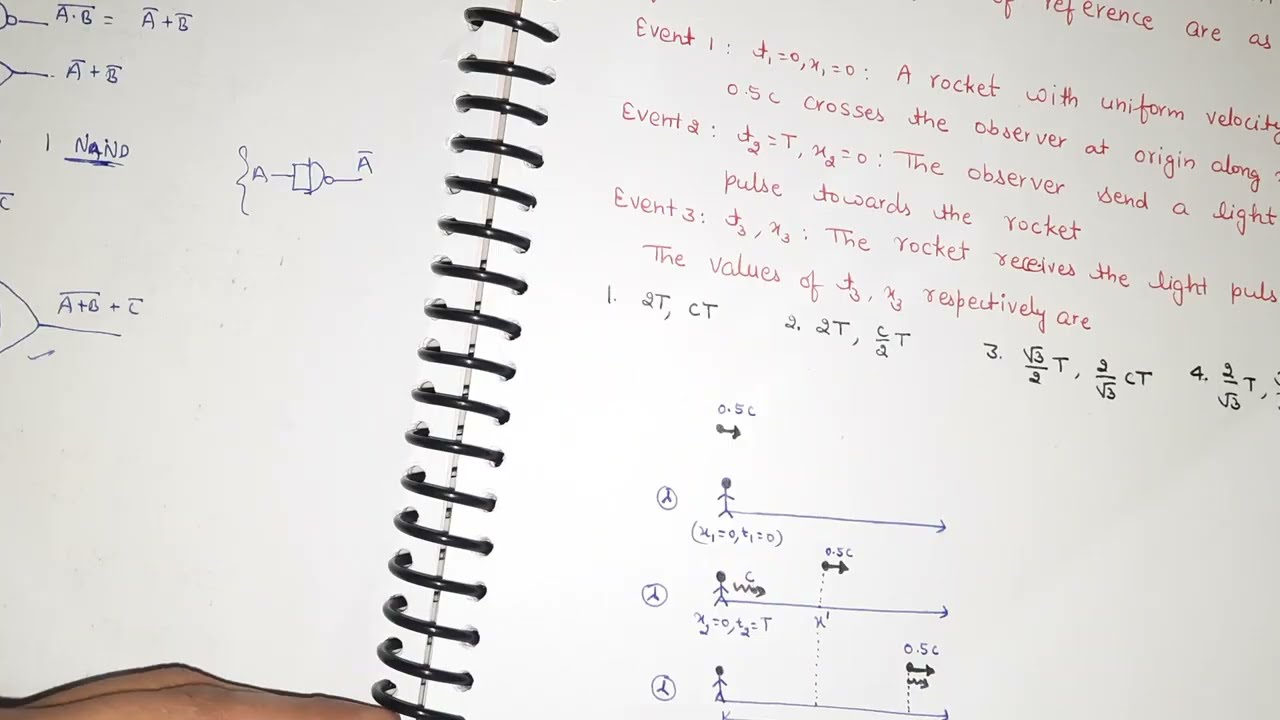 A̅·̅B̅ = A̅ + B̅
A̅ + B̅
1 NAND
{ A A̅
C̅
A̅+̅B̅ + C̅
of reference are as
Event 1 : t₁=0, x₁=0 : A rocket with uniform velocity
0.5c crosses the observer at origin along
Event 2 : t₂=T, x₂=0 : The observer send a light
pulse towards the rocket
Event 3 : t₃, x₃ : The rocket receives the light puls
The values of t₃, x₃ respectively are
1. 2T, CT 2. 2T, c/2 T 3. √3/2 T, 2/√3 CT 4. 2/√3 T,
0.5c
(x₁=0, t₁=0)
0.5c
c
x₂=0, t₂=T x'
0.5c